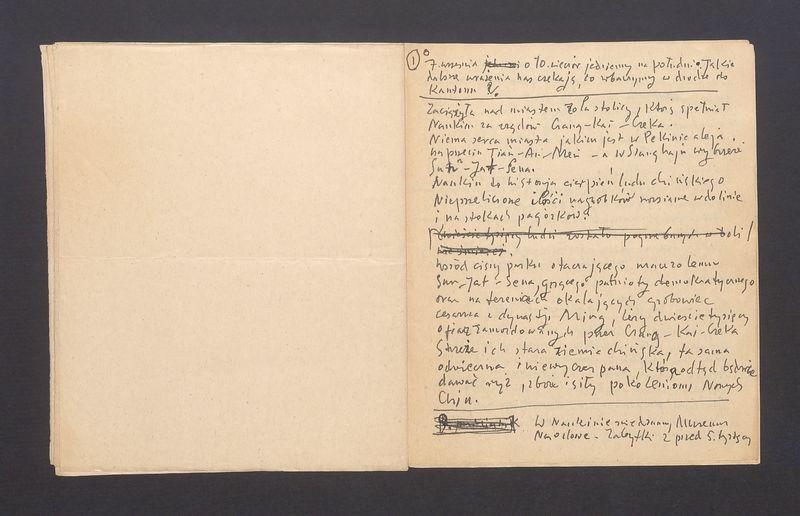 ①
7. września o 10. wieczór jedziemy na południe. Jakie
nowe wrażenia nas czekają, co zobaczymy w drodze do
Kantonu?
Zaciążyła nad miastem rola stolicy, którą spełniał
Nankin za rządów Czang-Kai-Czeka.
Niema serca miasta jakim jest w Pekinie aleja
naprzeciw Tian-An-Men - a w Szanghaju wybrzeże
Sun-Jat-Sena.
Nankin to historja cierpień ludu chińskiego
Nieprzeliczone ilości nagrobków rozsiane w dolinie
i na stokach pagórków.
ludzi zostało pogrzebanych w
wśród ciszy parku otaczającego mauzoleum
Sun-Jat-Sena, gorącego patrioty demokratycznego
oraz na terenach okalających grobowiec
cesarza z dynastji Ming, leży dwieście tysięcy
ofiar zamordowanych przez Czang-Kai-Czeka
Strzeże ich stara ziemia chińska, ta sama
odwieczna i niewyczerpana, która odtąd będzie
dawać ryż, zboże i siły pokoleniom Nowych
Chin.
W Nankinie zwiedzamy Muzeum
Narodowe - Zabytki z przed 5. tysięcy